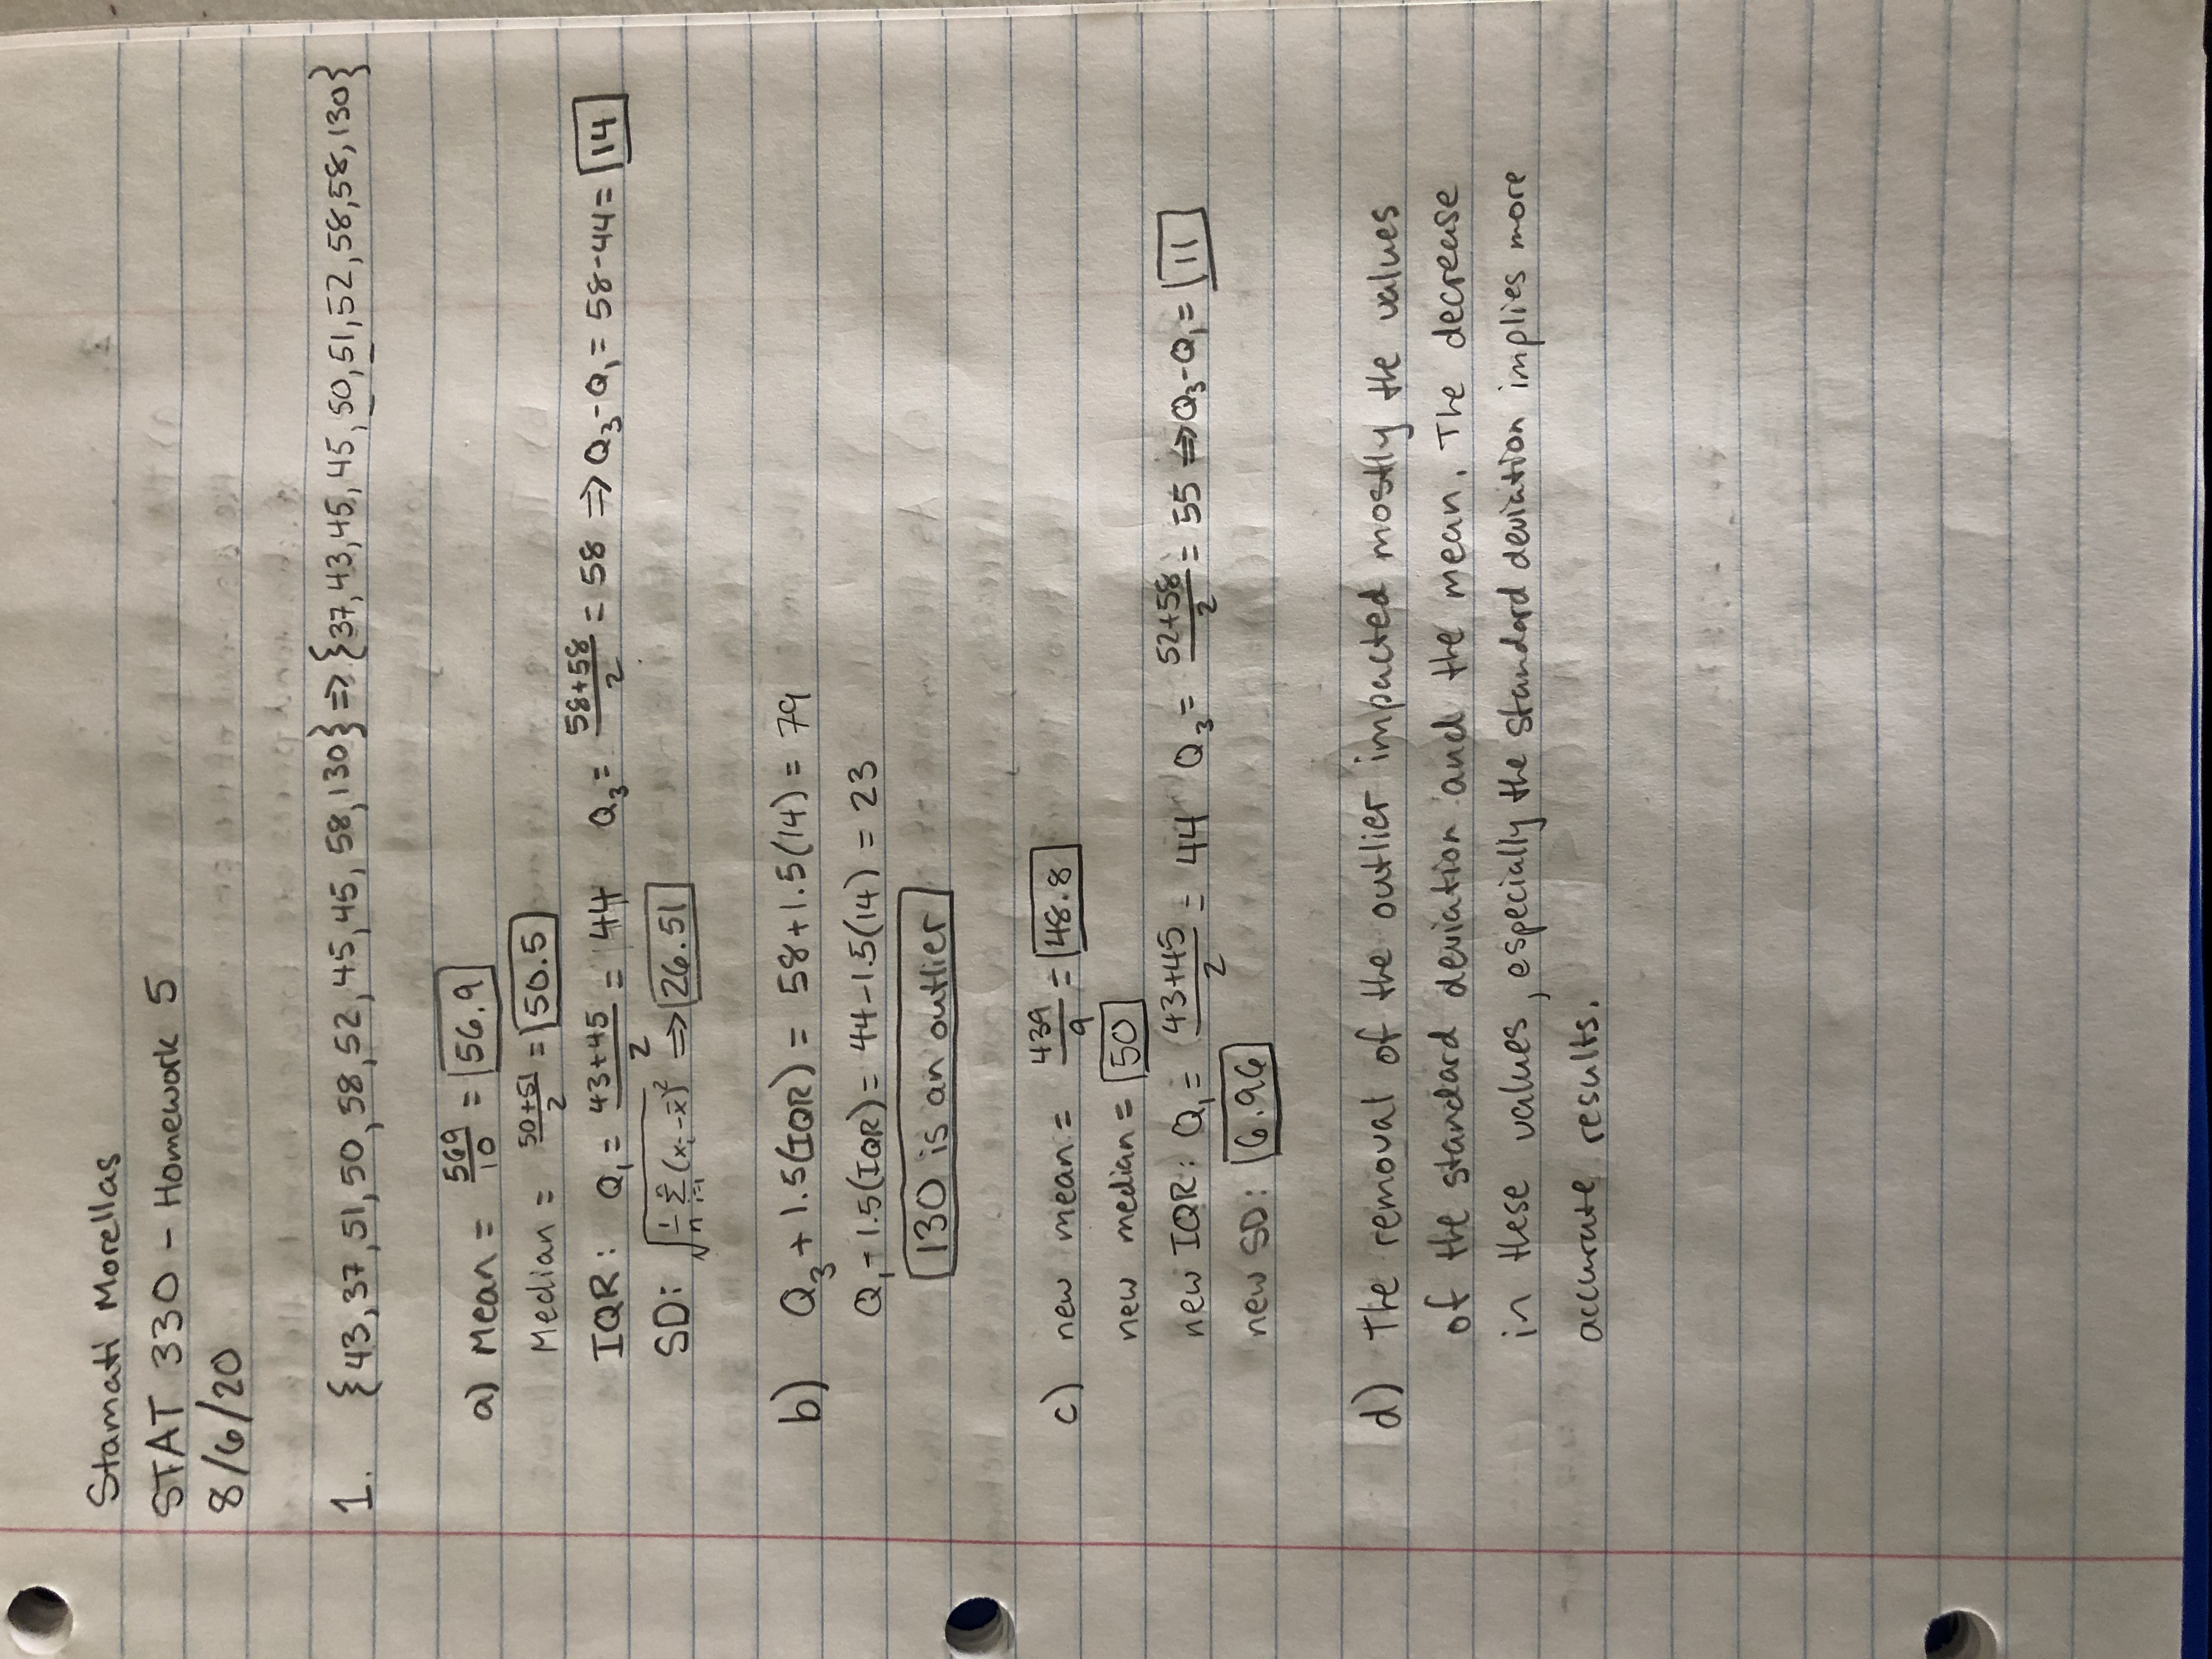 Stamati Morellas
STAT 330 - Homework 5
8/6/20
1. {43,37,51,50,58,52,45,45,58,130} ⇒ {37,43,45,45,50,51,52,58,58,130}
a) Mean = 569/10 = 56.9
Median = (50+51)/2 = 50.5
IQR: Q₁ = (43+45)/2 = 44 Q₃ = (58+58)/2 = 58 ⇒ Q₃-Q₁ = 58-44 = 14
SD: √(1/n Σⁿᵢ₌₁ (xᵢ-x̄)²) ⇒ 26.51
b) Q₃ + 1.5(IQR) = 58+1.5(14) = 79
Q₁ - 1.5(IQR) = 44-1.5(14) = 23
130 is an outlier
c) new mean = 439/9 = 48.8
new median = 50
new IQR: Q₁ = (43+45)/2 = 44 Q₃ = (52+58)/2 = 55 ⇒ Q₃-Q₁ = 11
new SD: 6.96
d) The removal of the outlier impacted mostly the values
of the standard deviation and the mean. The decrease
in these values, especially the standard deviation implies more
accurate results.